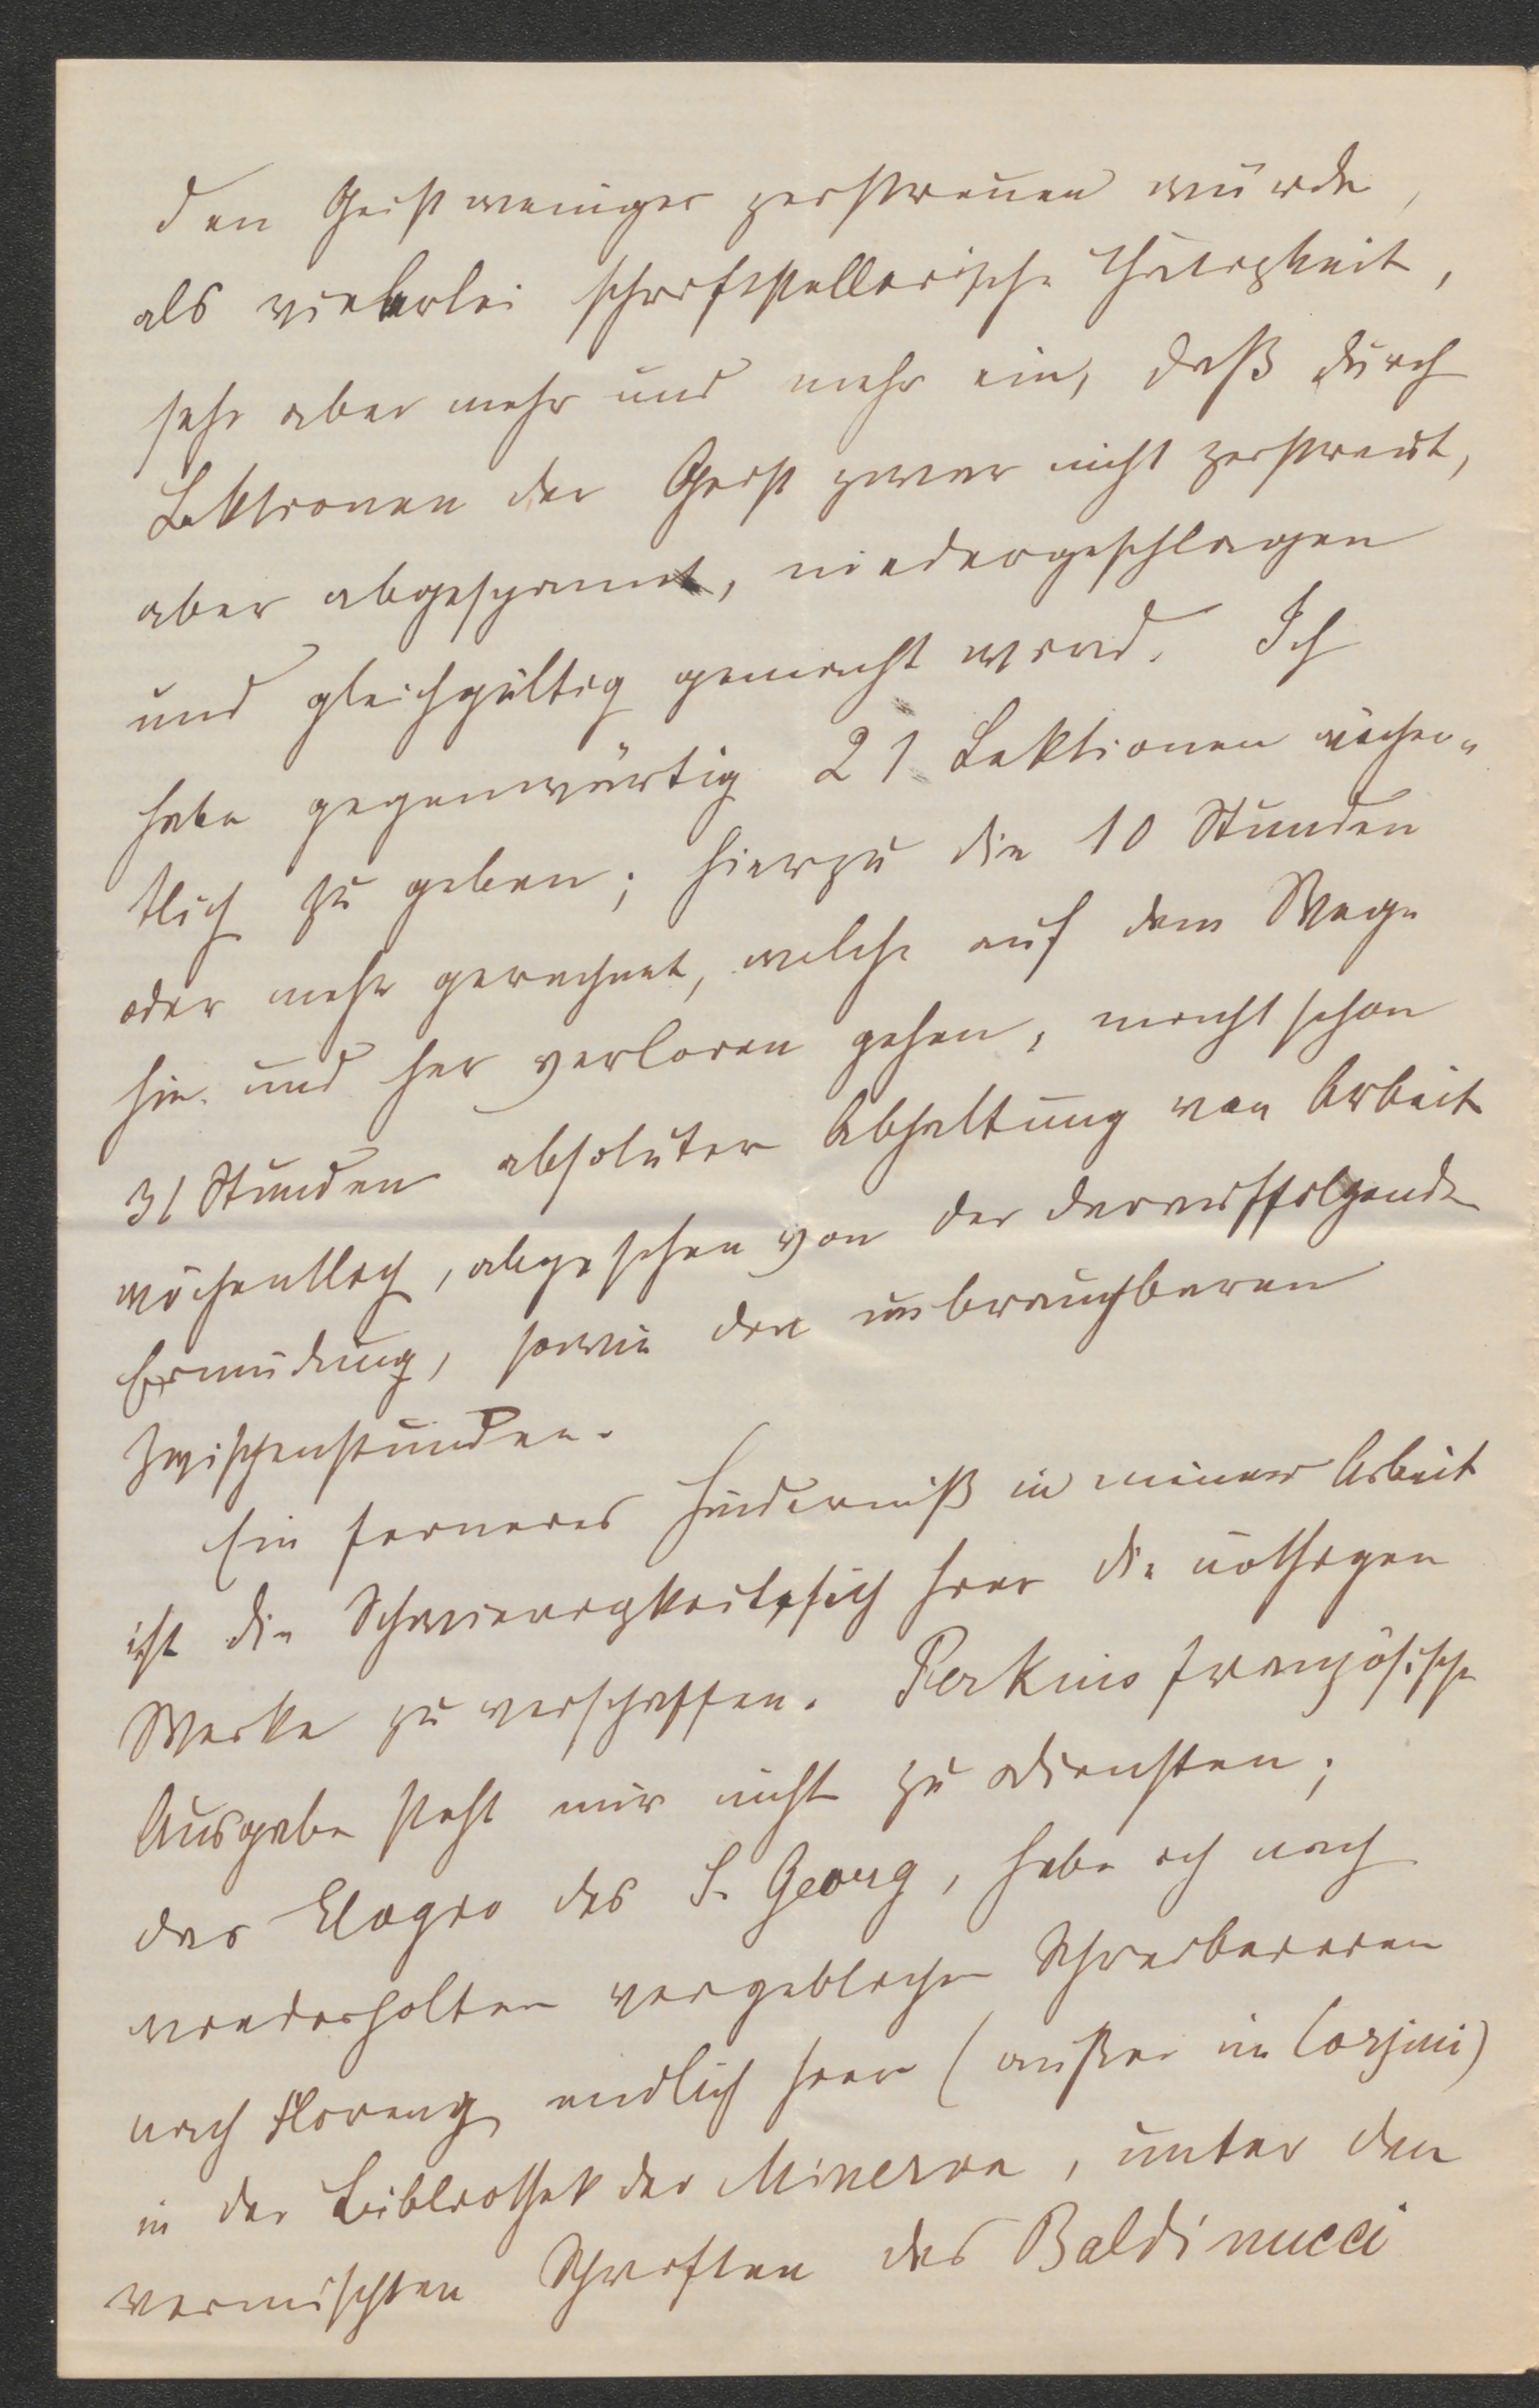 den Geist weniger zerstreuen würde,
als vielerlei schriftstellerische Thätigkeit,
sehe aber mehr und mehr ein, daß durch
Lektionen der Geist zwar nicht zerstreut,
aber abgespannt, niedergeschlagen
und gleichgültig gemacht wird. Ich
habe gegenwärtig 21 Lektionen wöchen„
tlich zu geben; hierzu die 10 Stunden
oder mehr gerechnet, welche auf dem Wege
hin und her verloren gehen, macht schon
31 Stunden absoluter Abhaltung von Arbeit
wöchentlich, abgesehen von der darauffolgende
Ermüdung, sowie den unbrauchbaren
Zwischenstunden.
Ein ferneres Hinderniß in meiner Arbeit
ist die Schwierigkeit, sich hier die nöthigen
Werke zu verschaffen. Perkins französische
Ausgabe steht mir nicht zu Diensten;
das Elogio des S. Georg, habe ich nach
wiederholten vergeblichen Schreibereien
nach Florenz endlich hier (außer in Corsini)
in der Bibliothek der Minerva, unter den
vermischten Schriften des Baldinucci